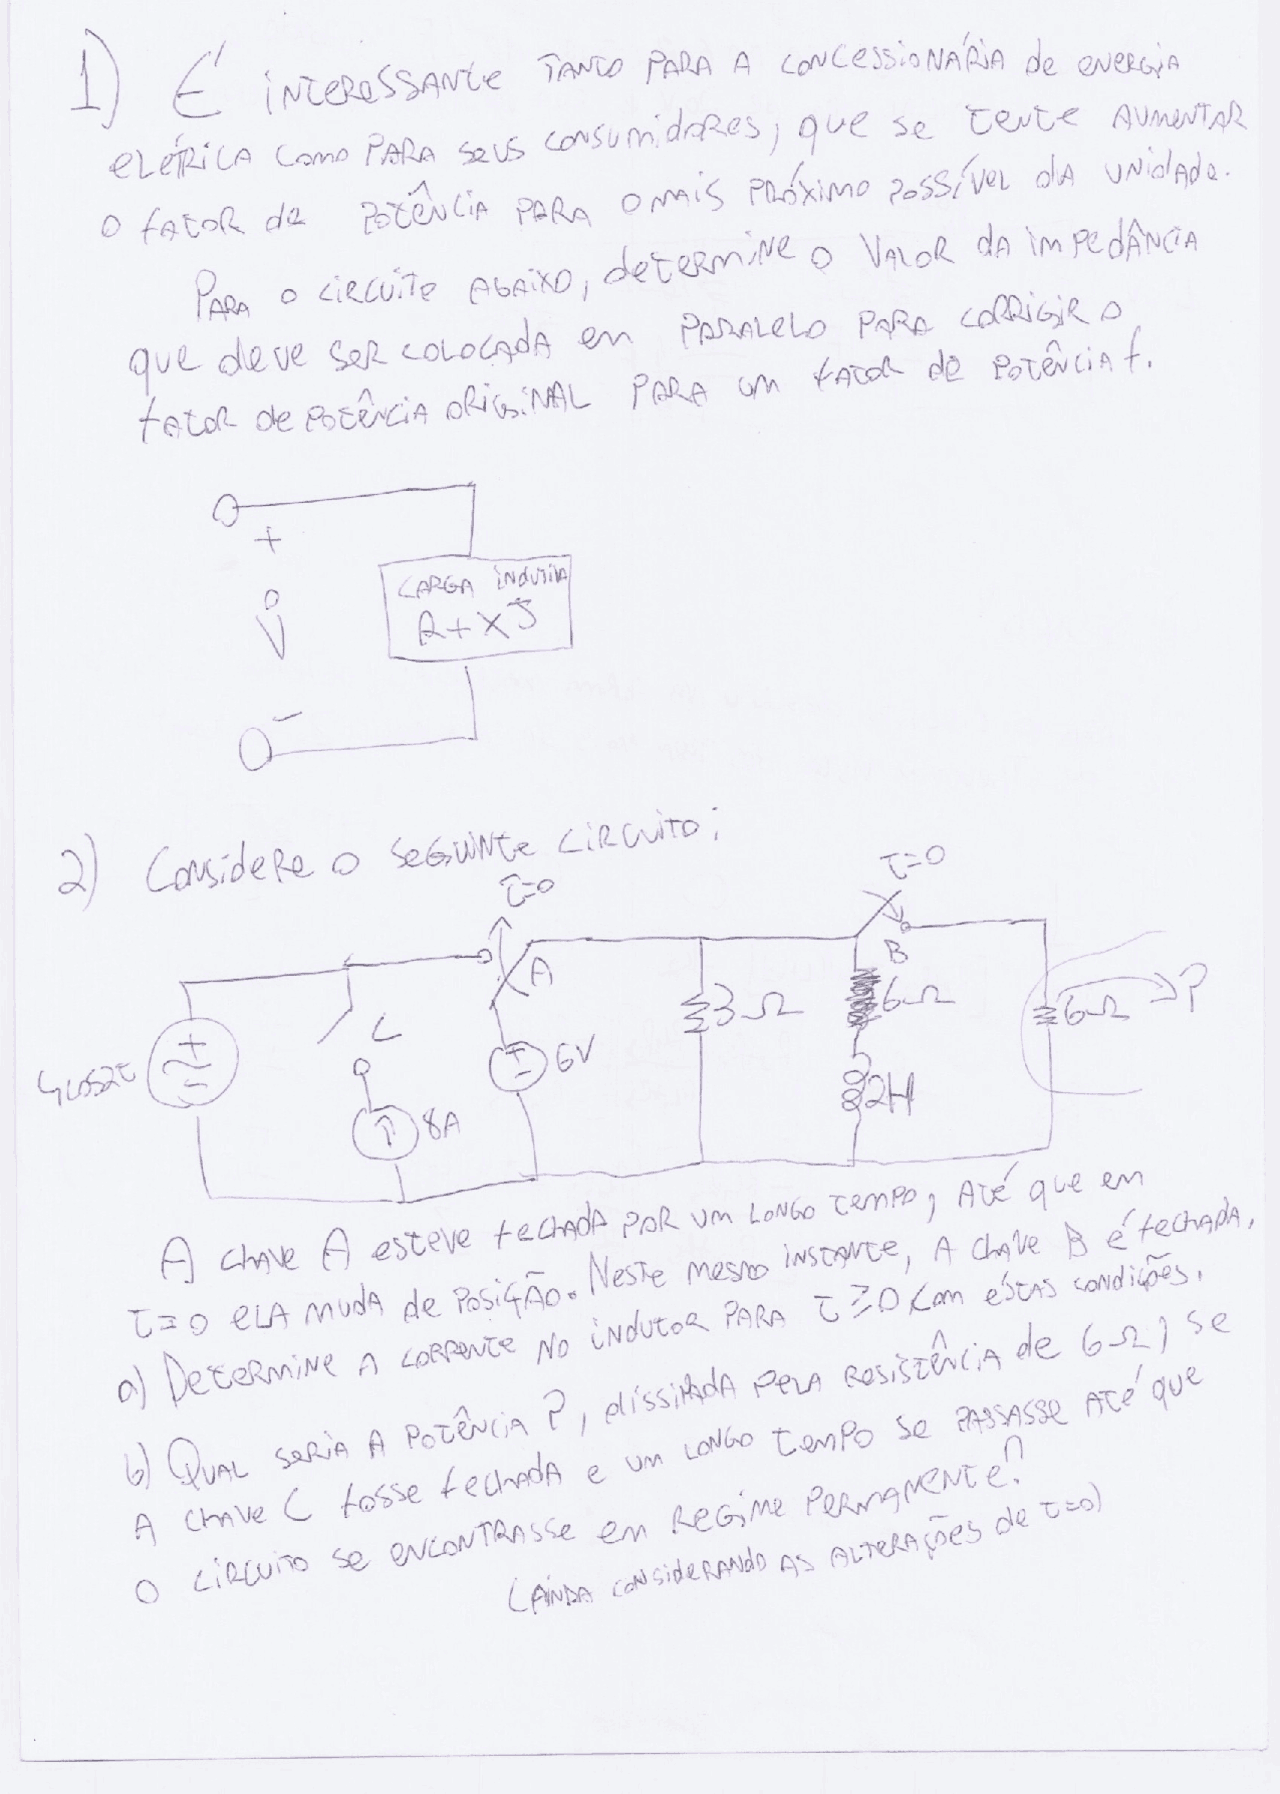 1) É INTERESSANTE TANTO PARA A CONCESSIONÁRIA de ENERGIA
ELÉTRICA COMO PARA SEUS CONSUMIDORES, que se TENTE AUMENTAR
O FATOR de POTÊNCIA PARA O MAIS PRÓXIMO POSSÍVEL DA UNIDADE.
PARA O CIRCUITO ABAIXO, DETERMINE O VALOR DA IMPEDÂNCIA
que deve SER COLOCADA em PARALELO PARA CORRIGIR O
FATOR de POTÊNCIA ORIGINAL PARA UM FATOR DE POTÊNCIA f.
+
CARGA INDUTIVA
R+XJ
V
-
2) CONSIDERE O SEGUINTE CIRCUITO:
t=0
t=0
A
B
4cos2t
+
-
C
8A
+
-
6V
3Ω
6Ω
2H
6Ω
P
A CHAVE A ESTEVE FECHADA POR UM LONGO TEMPO, ATÉ que em
t=0 ELA MUDA de POSIÇÃO. NESTE MESMO INSTANTE, A CHAVE B é FECHADA.
a) DETERMINE A CORRENTE NO INDUTOR PARA t≥0 COM ESTAS CONDIÇÕES.
b) QUAL SERIA A POTÊNCIA P, DISSIPADA PELA RESISTÊNCIA de 6Ω, SE
A CHAVE C FOSSE FECHADA e UM LONGO TEMPO SE PASSASSE ATÉ QUE
O CIRCUITO SE ENCONTRASSE em REGIME PERMANENTE?
(AINDA CONSIDERANDO AS ALTERAÇÕES de t=0)